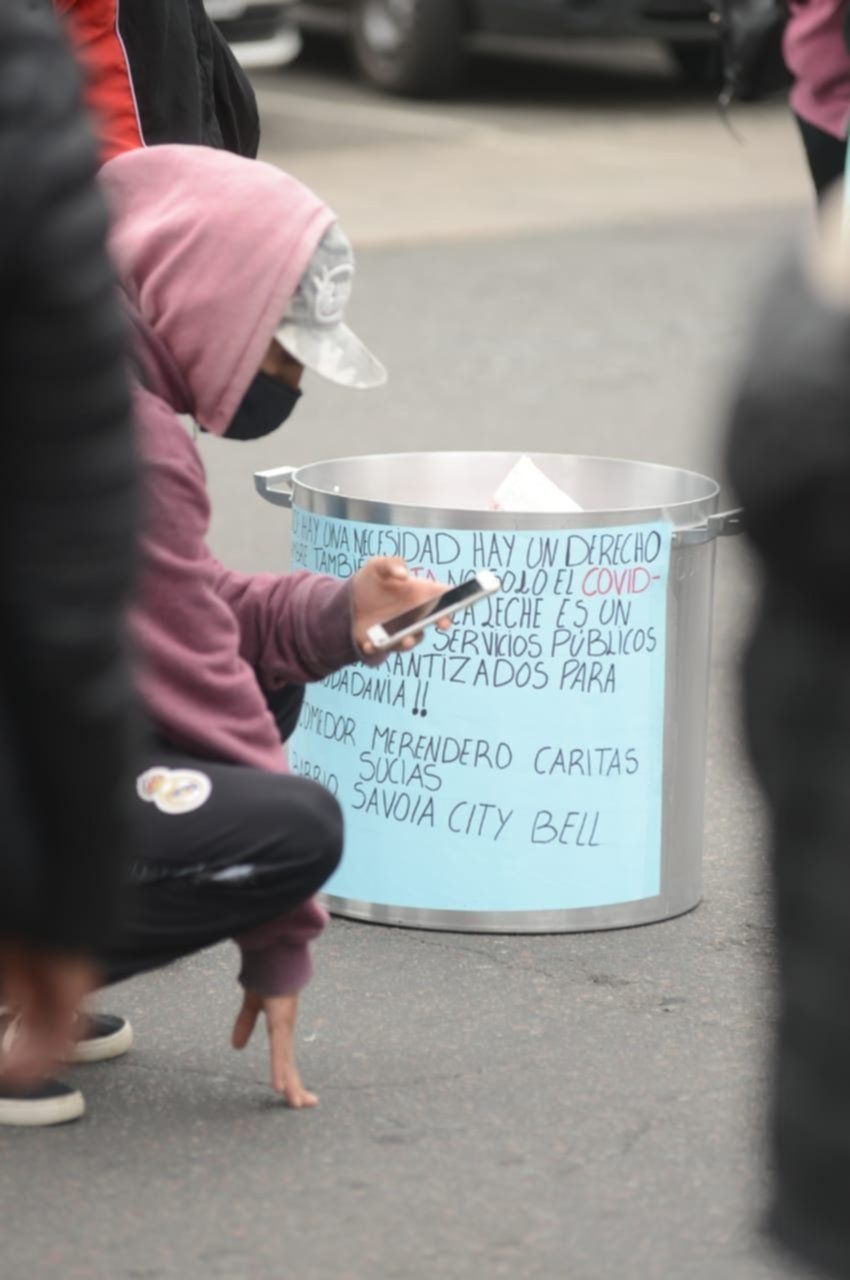 HAY UNA NECESIDAD HAY UN DERECHO
NO SOLO EL COVID-
LECHE ES UN
SERVICIOS PÚBLICOS
PARA
COMEDOR MERENDERO CARITAS
SUCIAS
BARRIO SAVOIA CITY BELL